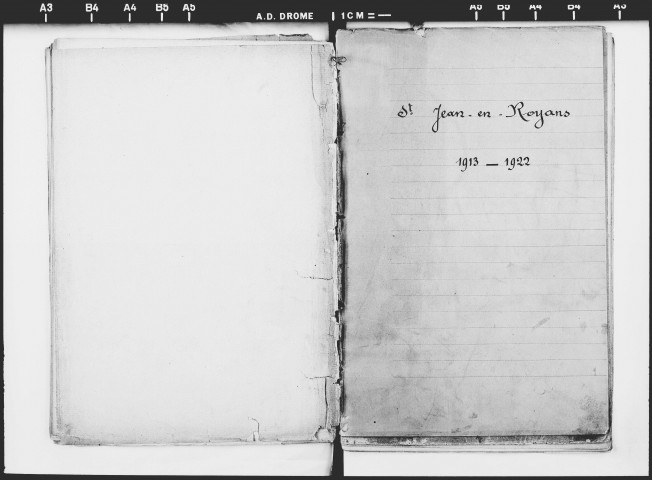 A3 B4 A4 B5 A5 A.D. DROME 1CM = A5 B5 A4 B4 A3
St Jean-en-Royans
1913 — 1922